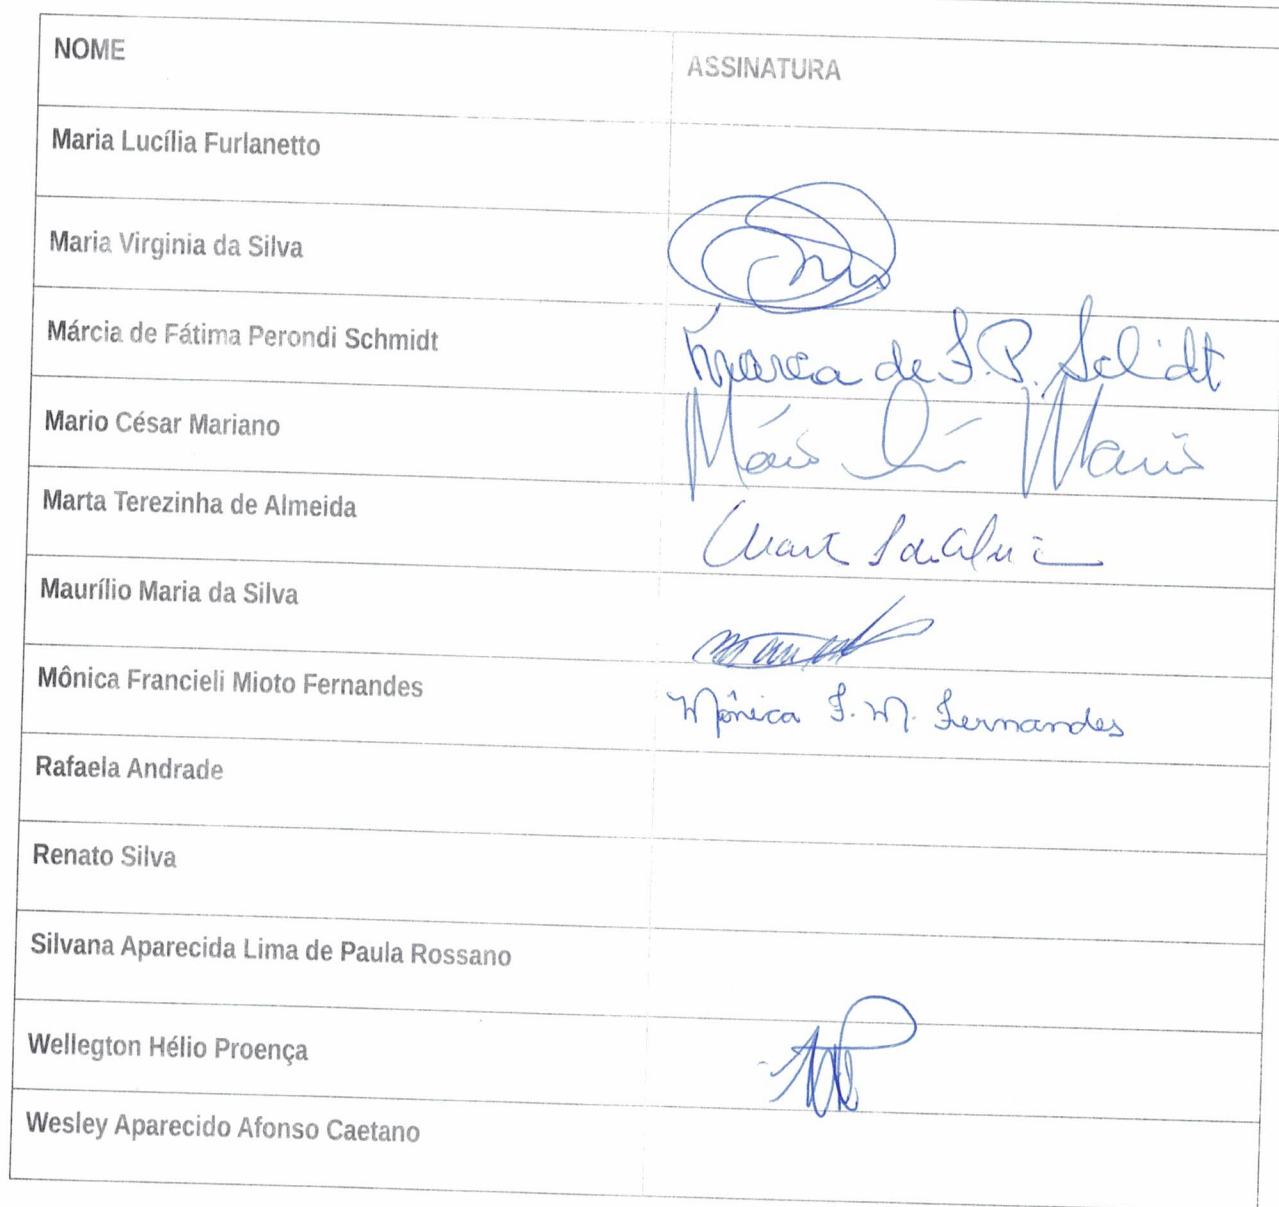 NOME
ASSINATURA
Maria Lucília Furlanetto
Maria Virginia da Silva
Márcia de Fátima Perondi Schmidt
Marcia de F. P. Schidt
Mario César Mariano
Marta Terezinha de Almeida
Maurílio Maria da Silva
Mônica Francieli Mioto Fernandes
Mônica F. M. Fernandes
Rafaela Andrade
Renato Silva
Silvana Aparecida Lima de Paula Rossano
Wellegton Hélio Proença
Wesley Aparecido Afonso Caetano